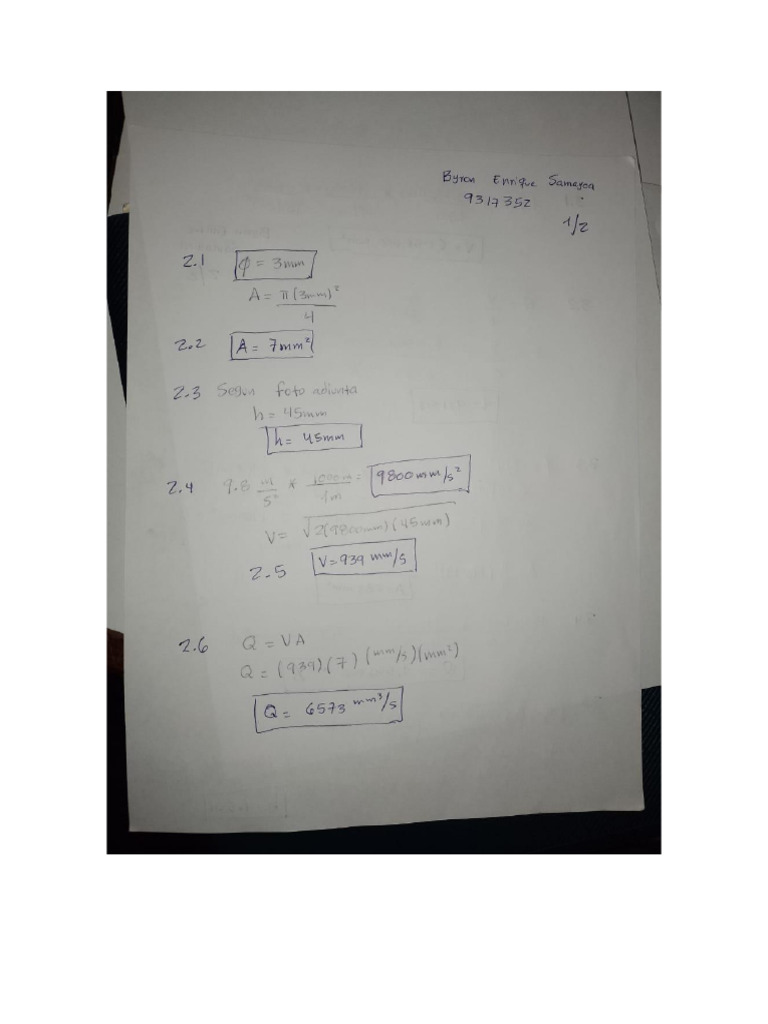 Byron Enrique Samayoa
9317352
1/2
2.1 φ = 3mm
A = π(3mm)²
4
2.2 A = 7mm²
2.3 Segun foto adjunta
h = 45mm
h = 45mm
2.4 9.8 m/s² * 1000m/1m = 9800 mm/s²
V = √2(9800mm)(45mm)
2.5 V = 939 mm/s
2.6 Q = VA
Q = (939)(7) (mm/s)(mm²)
Q = 6573 mm³/s